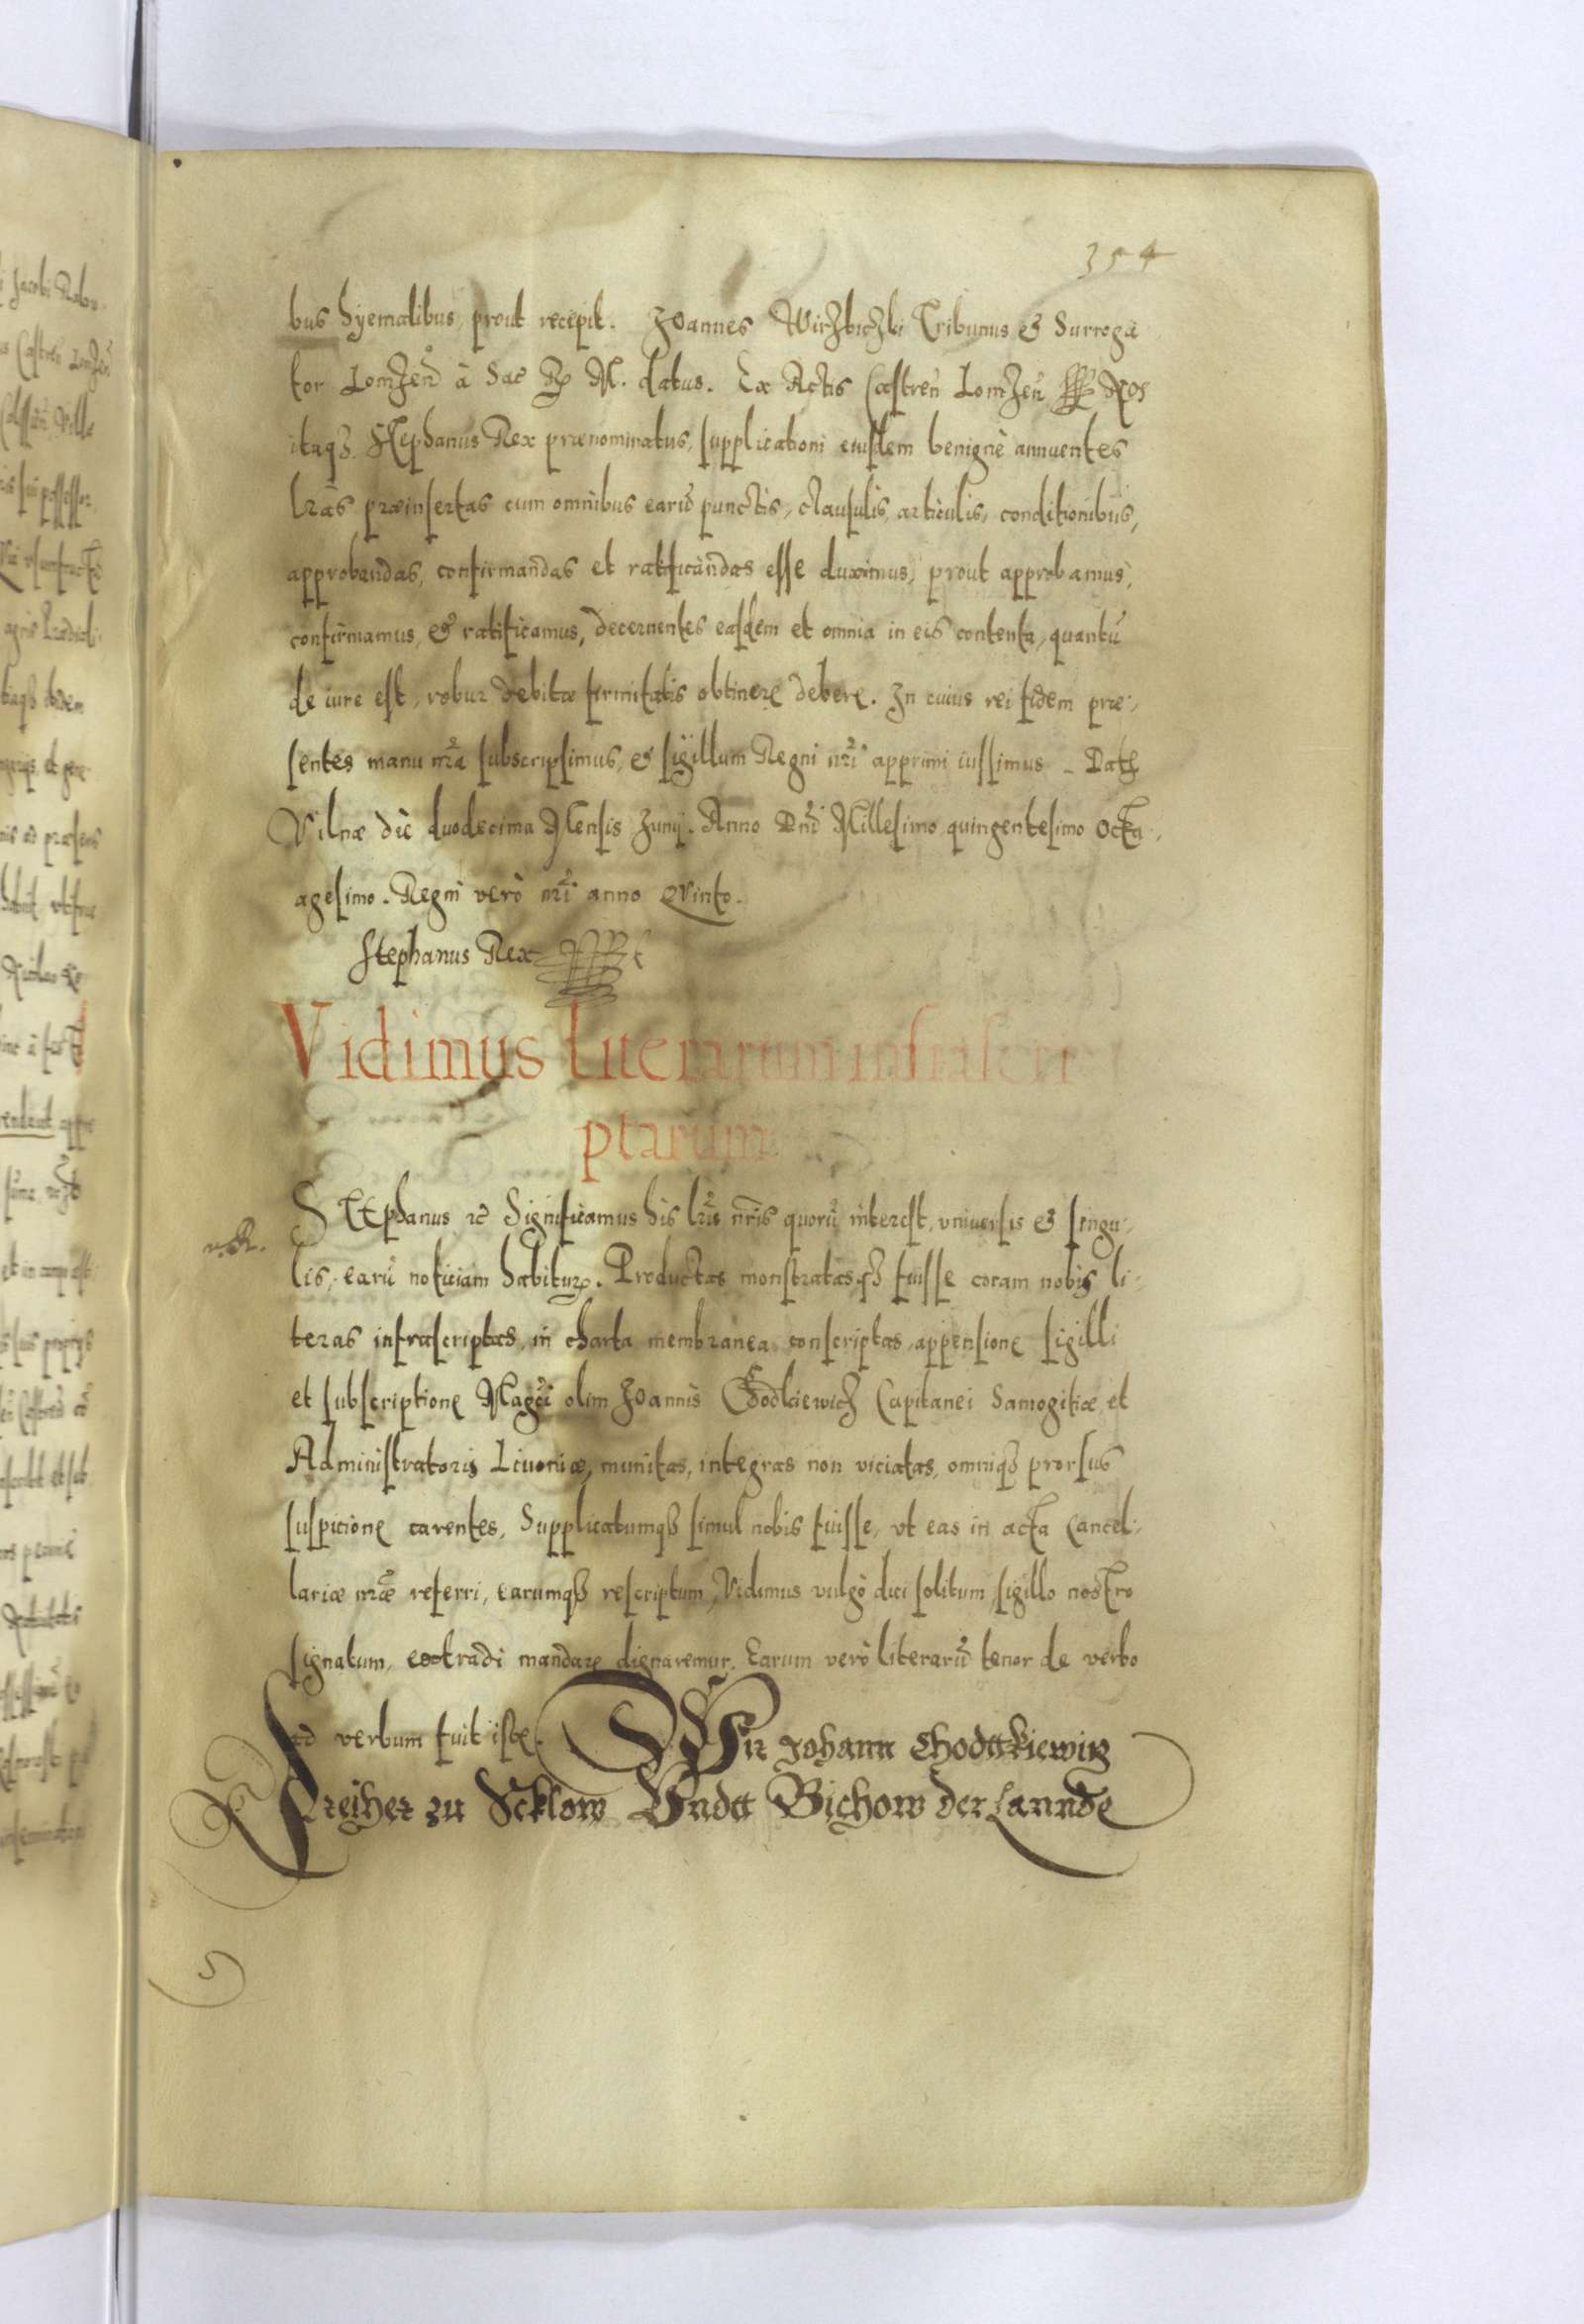 354
bus hyemalibus, prout recepit. Joannes Wirzbiczki Tribunus & Surroga
tor Lomzen̄ à Sac̄ R. M. datus. Ex Actis Castren̄ Lomzen̄ Nos
itaq₃ Stephanus Rex prænominatus, supplicationi eiusdem benignè annuentes
lr̄as præinsertas cum omnibus earū punctis, clausulis, articulis, conditionibus,
approbandas, confirmandas et ratificandas esse duximus, prout approbamus,
confirmamus, & ratificamus, decernentes easdem et omnia in eis contenta, quantū
de iure est, robur debitæ firmitatis obtinere debere. In cuius rei fidem præ-
sentes manu nr̄a subscripsimus, & sigillum Regni nr̄i apprimi iussimus. Dat
Vilnæ die duodecima Mensis Junij. Anno Dn̄i Millesimo quingentesimo octu-
agesimo. Regni verò nr̄i anno Quinto.
Stephanus Rex
Vidimus literarum infrascri
ptarum
Stephanus &c̄ Significamus his lr̄is nr̄is quorū interest, vniversis & singu-
v. R.
lis, earū noticiam habituris. Productas monstratasq₃ fuisse coram nobis li-
teras infrascriptas, in charta membranea conscriptas, appensione sigilli
et subscriptione Maḡci olim Joannis Chodkiewicz Capitanei Samogitiæ et
Administratoris Livoniæ, munitas, integras non viciatas, omniq₃ prorsus
suspicione carentes, Supplicatumq₃ simul nobis fuisse, vt eas in acta Cancel-
lariæ nr̄æ referri, earumq₃ rescriptum, Vidimus vulgò dici solitum, sigillo nostro
signatum, extradi mandare dignaremur. Earum verò literarū tenor de verbo
ad verbum fuit iste. Wir Johann Chodttkiewitz
Freiher zu Scklow Vndtt Bichow der Lannde